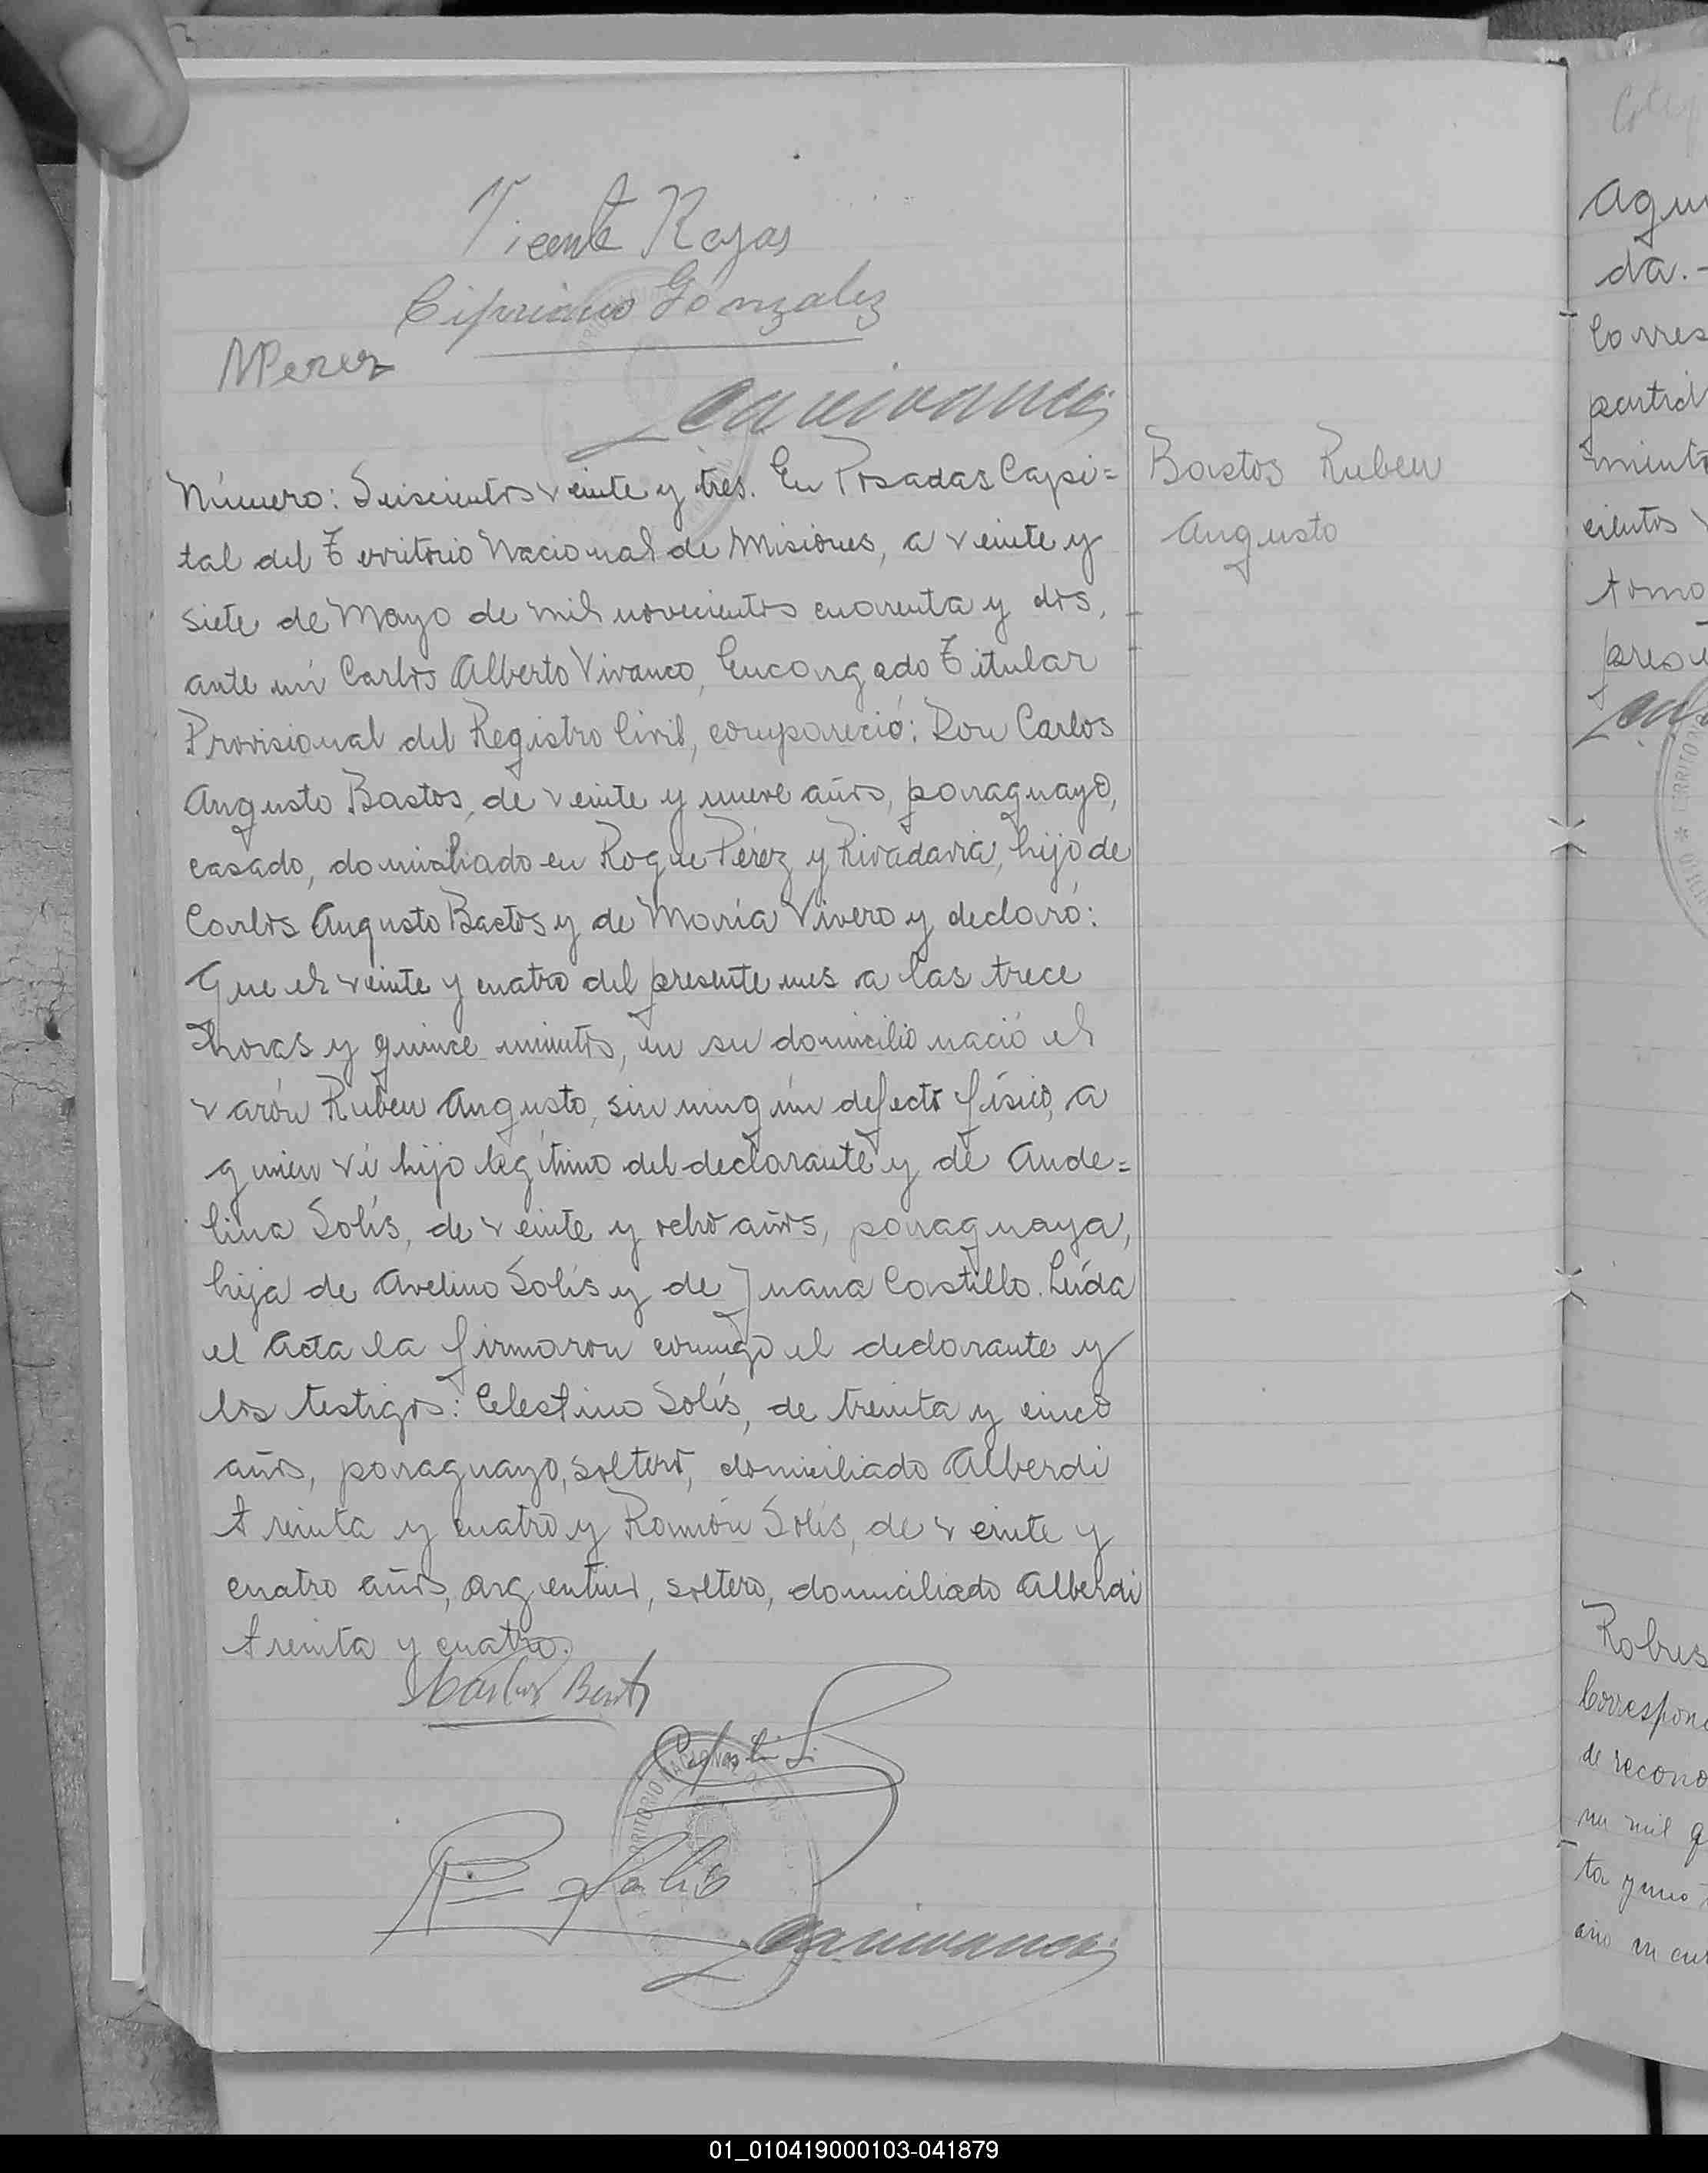 Vicente Rojas
Cipriano Gonzalez
MPerez
Número: Seiscientos veinte y tres. En Posadas Capi=
tal del Territorio Nacional de Misiones, a veinte y
siete de Mayo de mil novecientos cuarenta y dos,
ante mi Carlos Alberto Vivanco, Encargado Titular
Provisional del Registro Civil, compareció: Don Carlos
Augusto Bastos, de veinte y nueve años, paraguayo,
casado, domiciliado en Roque Pérez y Rivadavia, hijo de
Carlos Augusto Bastos y de María Vivero y declaró:
Que el veinte y cuatro del presente mes a las trece
horas y quince minutos, en su domicilio nació el
varón Ruben Augusto, sin ningún defecto físico, a
quien ví hijo legítimo del declarante y de Ande=
lina Solís, de veinte y ocho años, paraguaya,
hija de Avelino Solís y de Juana Castillo. Leída
el acta la firmaron conmigo el declarante y
los testigos: Celestino Solís, de treinta y cinco
años, paraguayo, soltero, domiciliado Alberdi
treinta y cuatro y Ramón Solís, de veinte y
cuatro años, argentino, soltero, domiciliado Alberdi
treinta y cuatro.
R Solis
Bastos Ruben
Augusto
da.-
Corres
partid
miento
cientos
tomo
Robres
Correspon
de recono
mil
ta y uno
año en cur
01_010419000103-041879